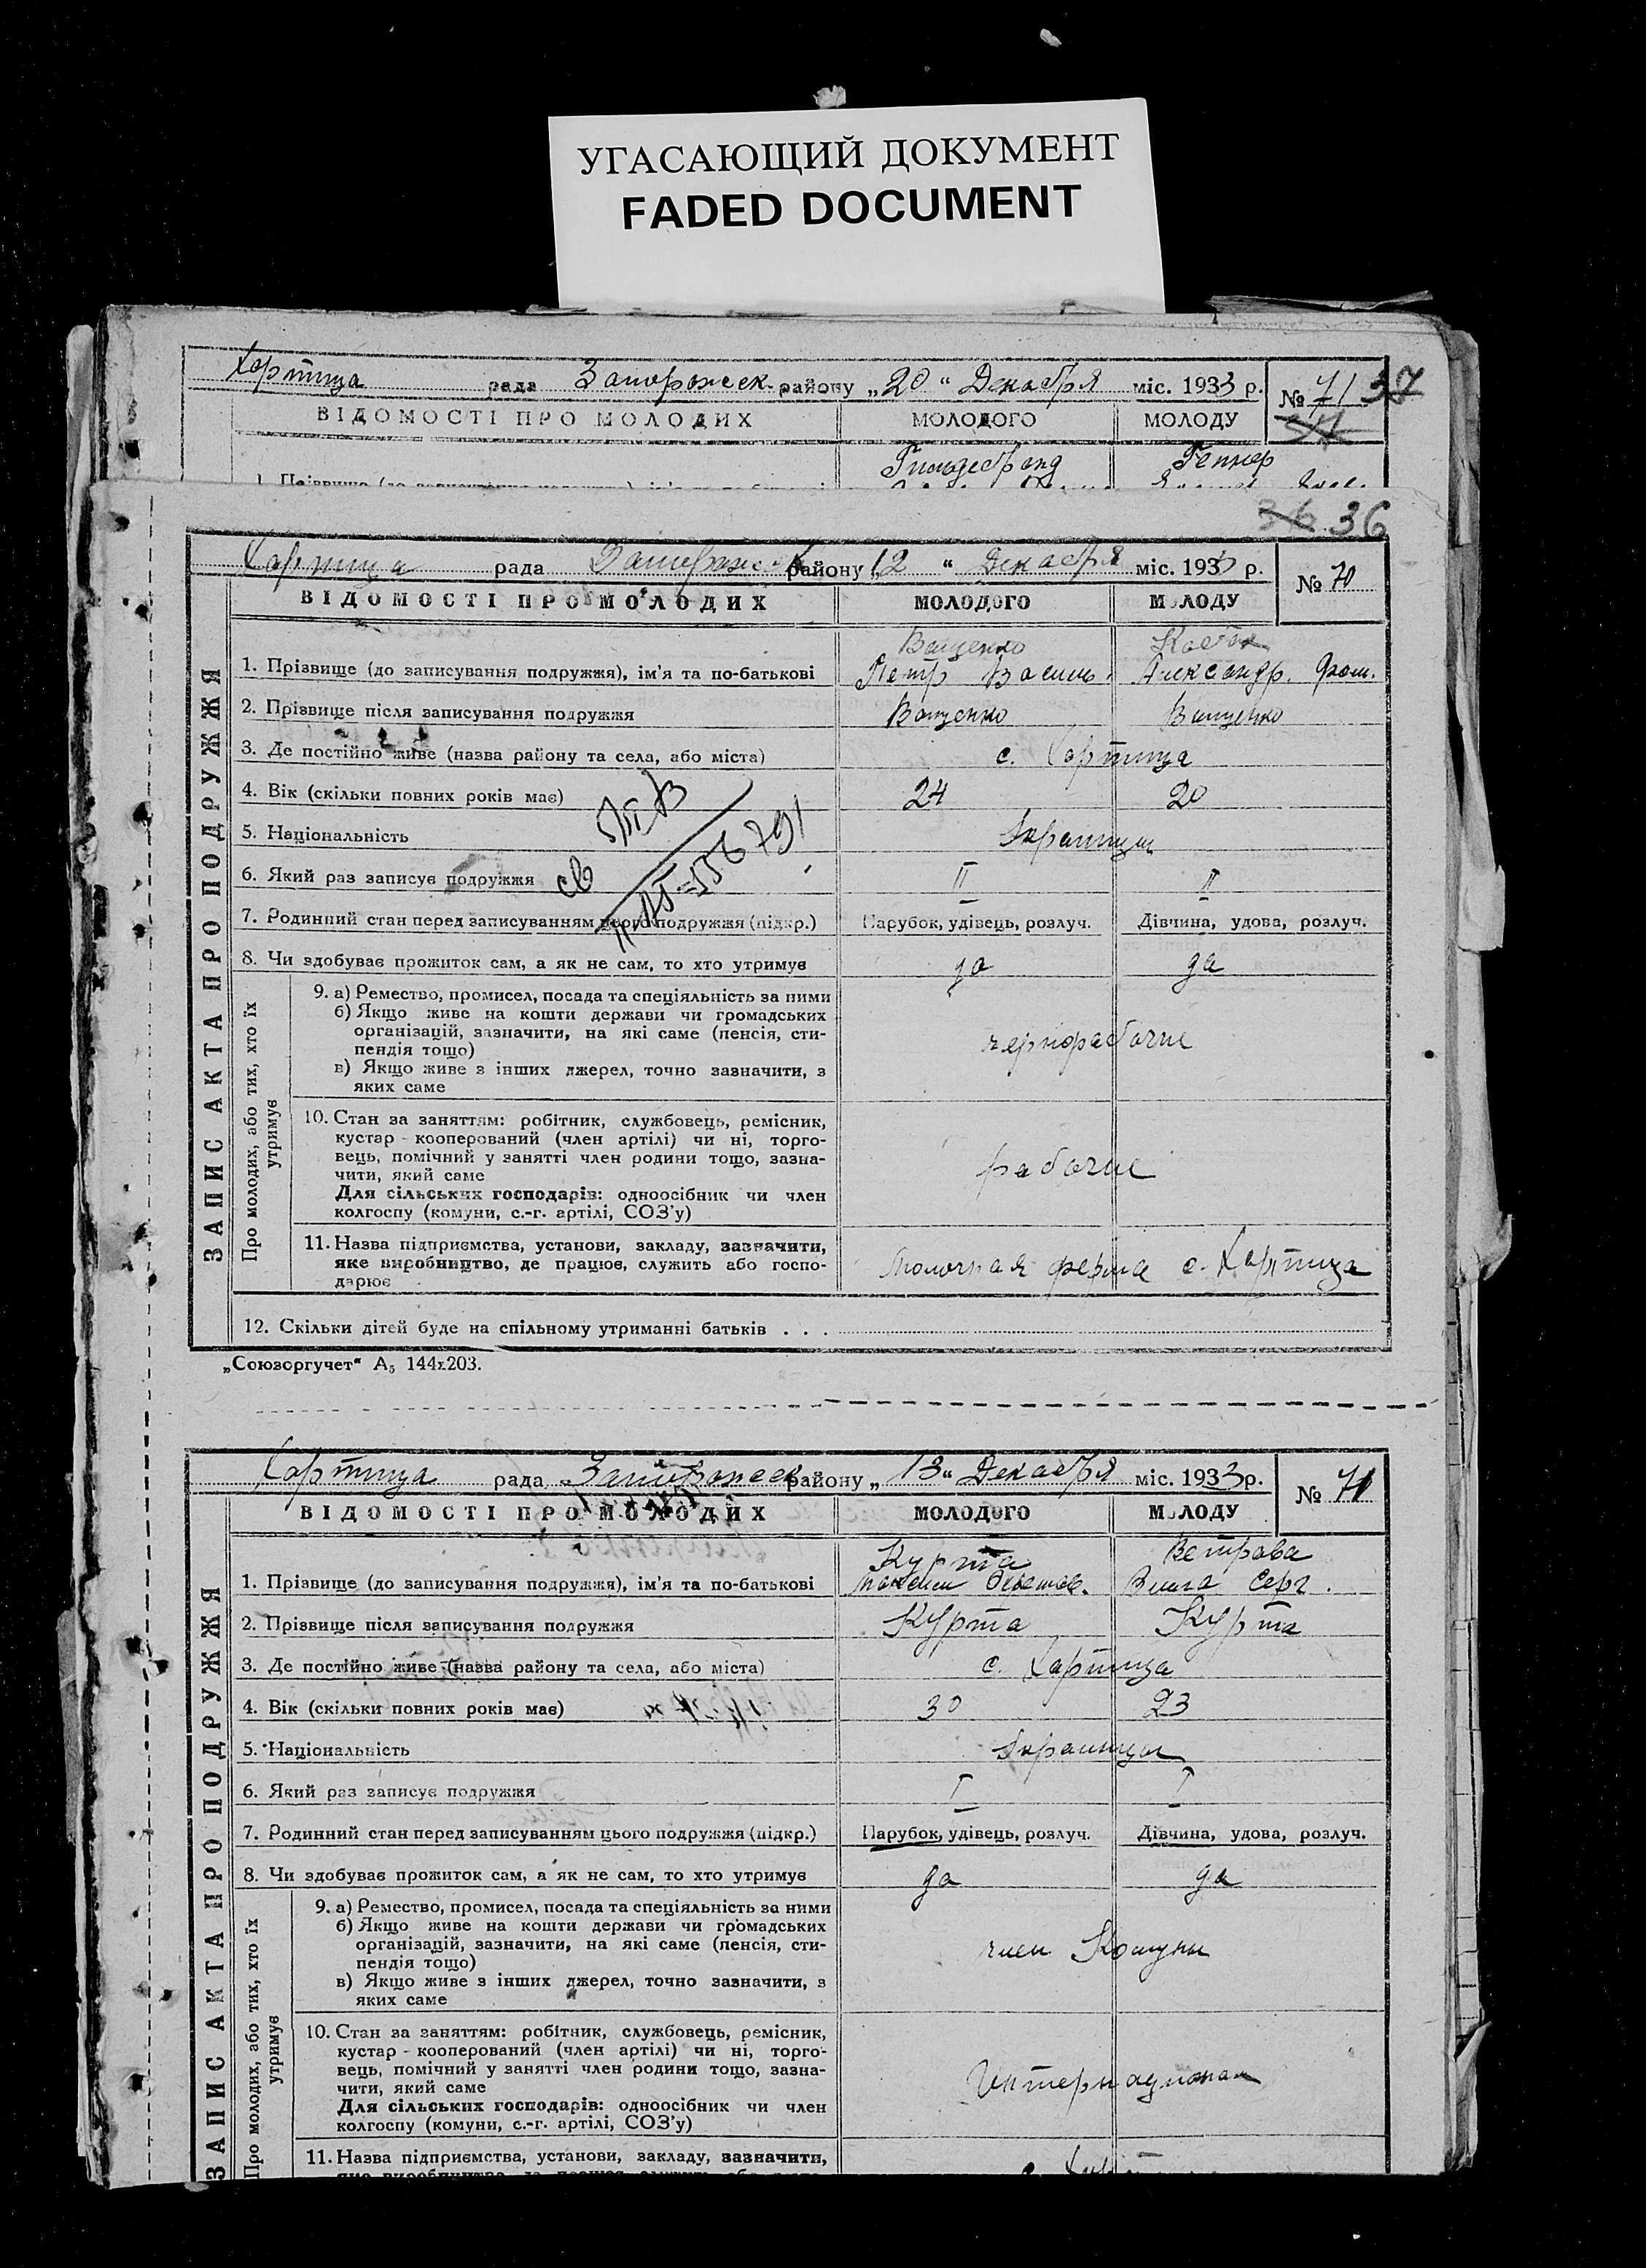 УГАСАЮЩИЙ ДОКУМЕНТ
FADED DOCUMENT
Хортица рада Запорожск. району „20“ Декабря міс. 1933 р. № 71 37
ВІДОМОСТІ ПРО МОЛОДИХ МОЛОДОГО МОЛОДУ
Гильдебранд Геппнер
36 36
Хортица рада Запорожск району „12“ Декабря міс. 1933 р. № 70
ВІДОМОСТІ ПРО МОЛОДИХ МОЛОДОГО МОЛОДУ
ЗАПИС АКТА ПРО ПОДРУЖЖЯ
Ващенко
1. Прізвище (до записування подружжя), ім'я та по-батькові Петр Василь. Александр. Фом.
2. Прізвище після записування подружжя Ващенко Ващенко
3. Де постійно живе (назва району та села, або міста) с. Хортица
4. Вік (скільки повних років має) 24 20
5. Національність Украинцы
6. Який раз записує подружжя II II
7. Родинний стан перед записуванням цього подружжя (підкр.) Парубок, удівець, розлуч. Дівчина, удова, розлуч.
8. Чи здобуває прожиток сам, а як не сам, то хто утримує да да
Про молодих, або тих, хто їх утримує
9. а) Ремество, промисел, посада та спеціяльність за ними
б) Якщо живе на кошти держави чи громадських
організацій, зазначити, на які саме (пенсія, сти-
пендія тощо) чернорабочие
в) Якщо живе з інших джерел, точно зазначити, з
яких саме
10. Стан за заняттям: робітник, службовець, ремісник,
кустар - кооперований (член артілі) чи ні, торго-
вець, помічний у занятті член родини тощо, зазна-
чити, який саме рабочие
Для сільських господарів: одноосібник чи член
колгоспу (комуни, с.-г. артілі, СОЗ'у)
11. Назва підприємства, установи, закладу, зазначити,
яке виробництво, де працює, служить або госпо- Молочная ферма с. Хортица
дарює
12. Скільки дітей буде на спільному утриманні батьків . . .
„Союзоргучет“ А5 144х203.
Хортица рада Запорожск району „13“ Декабря міс. 1933 р. № 71
ВІДОМОСТІ ПРО МОЛОДИХ МОЛОДОГО МОЛОДУ
ЗАПИС АКТА ПРО ПОДРУЖЖЯ
Курта Ветрова
1. Прізвище (до записування подружжя), ім'я та по-батькові Серг.
2. Прізвище після записування подружжя Курта Курта
3. Де постійно живе (назва району та села, або міста) с. Хортица
4. Вік (скільки повних років має) 30 23
5. Національність Украинцы
6. Який раз записує подружжя I I
7. Родинний стан перед записуванням цього подружжя (підкр.) Парубок, удівець, розлуч. Дівчина, удова, розлуч.
8. Чи здобуває прожиток сам, а як не сам, то хто утримує да да
Про молодих, або тих, хто їх утримує
9. а) Ремество, промисел, посада та спеціяльність за ними
б) Якщо живе на кошти держави чи громадських
організацій, зазначити, на які саме (пенсія, сти- член Комуны
пендія тощо)
в) Якщо живе з інших джерел, точно зазначити, з
яких саме
10. Стан за заняттям: робітник, службовець, ремісник,
кустар - кооперований (член артілі) чи ні, торго-
вець, помічний у занятті член родини тощо, зазна- Интернационал
чити, який саме
Для сільських господарів: одноосібник чи член
колгоспу (комуни, с.-г. артілі, СОЗ'у)
11. Назва підприємства, установи, закладу, зазначити,